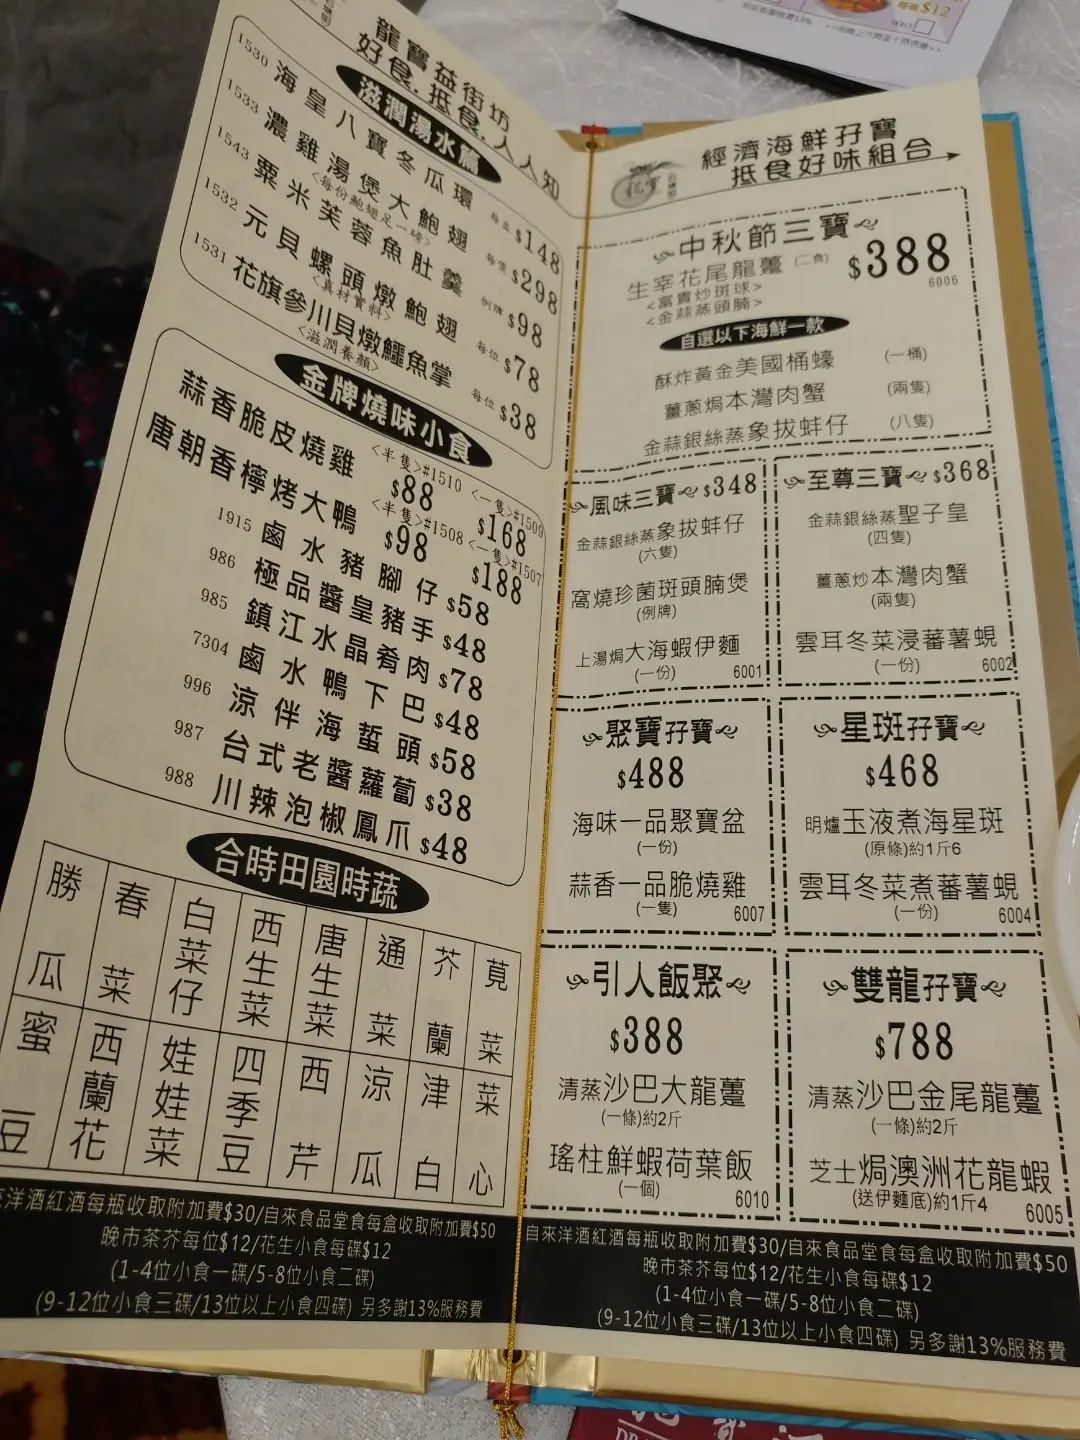 龍寶益街坊
好食．抵食．人人知
滋潤湯水篇
1530 海皇八寶冬瓜環 $148
1533 濃雞湯煲大鮑翅 $298
<每份鮑翅足一磅>
1543 粟米芙蓉魚肚羹 例牌 $98
1532 元貝螺頭燉鮑翅 每位 $78
<真材實料>
1531 花旗參川貝燉鱷魚掌 每位 $38
<滋潤養顏>
金牌燒味小食
蒜香脆皮燒雞 <半隻>#1510 $88 <一隻>#1509 $168
唐朝香檸烤大鴨 <半隻>#1508 $98 <一隻>#1507 $188
1915 鹵水豬腳仔 $58
986 極品醬皇豬手 $48
985 鎮江水晶肴肉 $78
7304 鹵水鴨下巴 $48
996 涼伴海蜇頭 $58
987 台式老醬蘿蔔 $38
988 川辣泡椒鳳爪 $48
合時田園時蔬
勝瓜 春菜 白菜仔 西生菜 唐生菜 通菜 芥蘭 莧菜
蜜豆 西蘭花 娃娃菜 四季豆 西芹 涼瓜 津白 菜心
來洋酒紅酒每瓶收取附加費$30/自來食品堂食每盒收取附加費$50
晚市茶芥每位$12/花生小食每碟$12
(1-4位小食一碟/5-8位小食二碟)
(9-12位小食三碟/13位以上小食四碟) 另多謝13%服務費
經濟海鮮孖寶
抵食好味組合
中秋節三寶 $388
生宰花尾龍躉 (二食) 6006
<富貴炒斑球>
<金蒜蒸頭腩>
自選以下海鮮一款
酥炸黃金美國桶蠔 (一桶)
薑蔥焗本灣肉蟹 (兩隻)
金蒜銀絲蒸象拔蚌仔 (八隻)
風味三寶 $348
金蒜銀絲蒸象拔蚌仔
(六隻)
窩燒珍菌斑頭腩煲
(例牌)
上湯焗大海蝦伊麵
(一份) 6001
至尊三寶 $368
金蒜銀絲蒸聖子皇
(四隻)
薑蔥炒本灣肉蟹
(兩隻)
雲耳冬菜浸蕃薯蜆
(一份) 6002
聚寶孖寶
$488
海味一品聚寶盆
(一份)
蒜香一品脆燒雞
(一隻) 6007
星斑孖寶
$468
明爐玉液煮海星斑
(原條)約1斤6
雲耳冬菜煮蕃薯蜆
(一份) 6004
引人飯聚
$388
清蒸沙巴大龍躉
(一條)約2斤
瑤柱鮮蝦荷葉飯
(一個) 6010
雙龍孖寶
$788
清蒸沙巴金尾龍躉
(一條)約2斤
芝士焗澳洲花龍蝦
(送伊麵底)約1斤4 6005
自來洋酒紅酒每瓶收取附加費$30/自來食品堂食每盒收取附加費$50
晚市茶芥每位$12/花生小食每碟$12
(1-4位小食一碟/5-8位小食二碟)
(9-12位小食三碟/13位以上小食四碟) 另多謝13%服務費